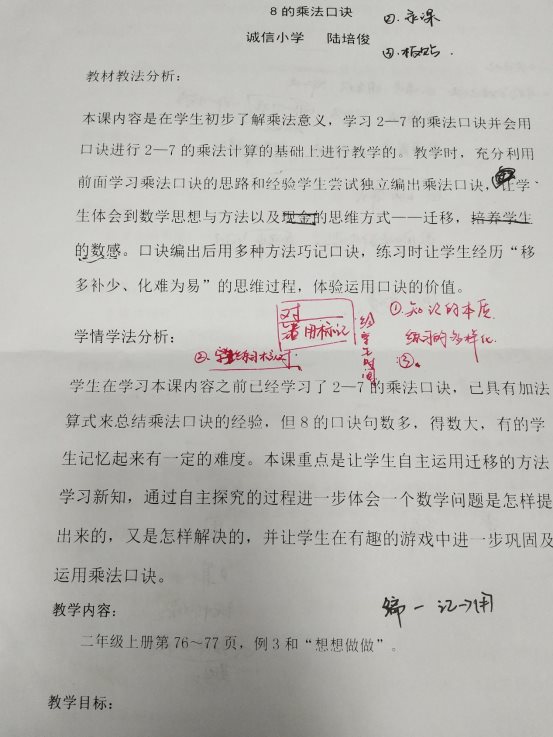 8 的乘法口诀
诚信小学 陆培俊
④.板贴.
教材教法分析：
本课内容是在学生初步了解乘法意义，学习 2—7 的乘法口诀并会用
口诀进行 2—7 的乘法计算的基础上进行教学的。教学时，充分利用
前面学习乘法口诀的思路和经验学生尝试独立编出乘法口诀，让学
生体会到数学思想与方法以及现金的思维方式——迁移，培养学生
的数感。口诀编出后用多种方法巧记口诀，练习时让学生经历“移
多补少、化难为易”的思维过程，体验运用口诀的价值。
对
用标记
①.知识的本质
练习的多样化.
③.
学情学法分析：
②.
学生在学习本课内容之前已经学习了 2—7 的乘法口诀，已具有加法
算式来总结乘法口诀的经验，但 8 的口诀句数多，得数大，有的学
生记忆起来有一定的难度。本课重点是让学生自主运用迁移的方法
学习新知，通过自主探究的过程进一步体会一个数学问题是怎样提
出来的，又是怎样解决的，并让学生在有趣的游戏中进一步巩固及
运用乘法口诀。
教学内容：
编一记一用
二年级上册第 76～77 页，例 3 和“想想做做”。
教学目标：